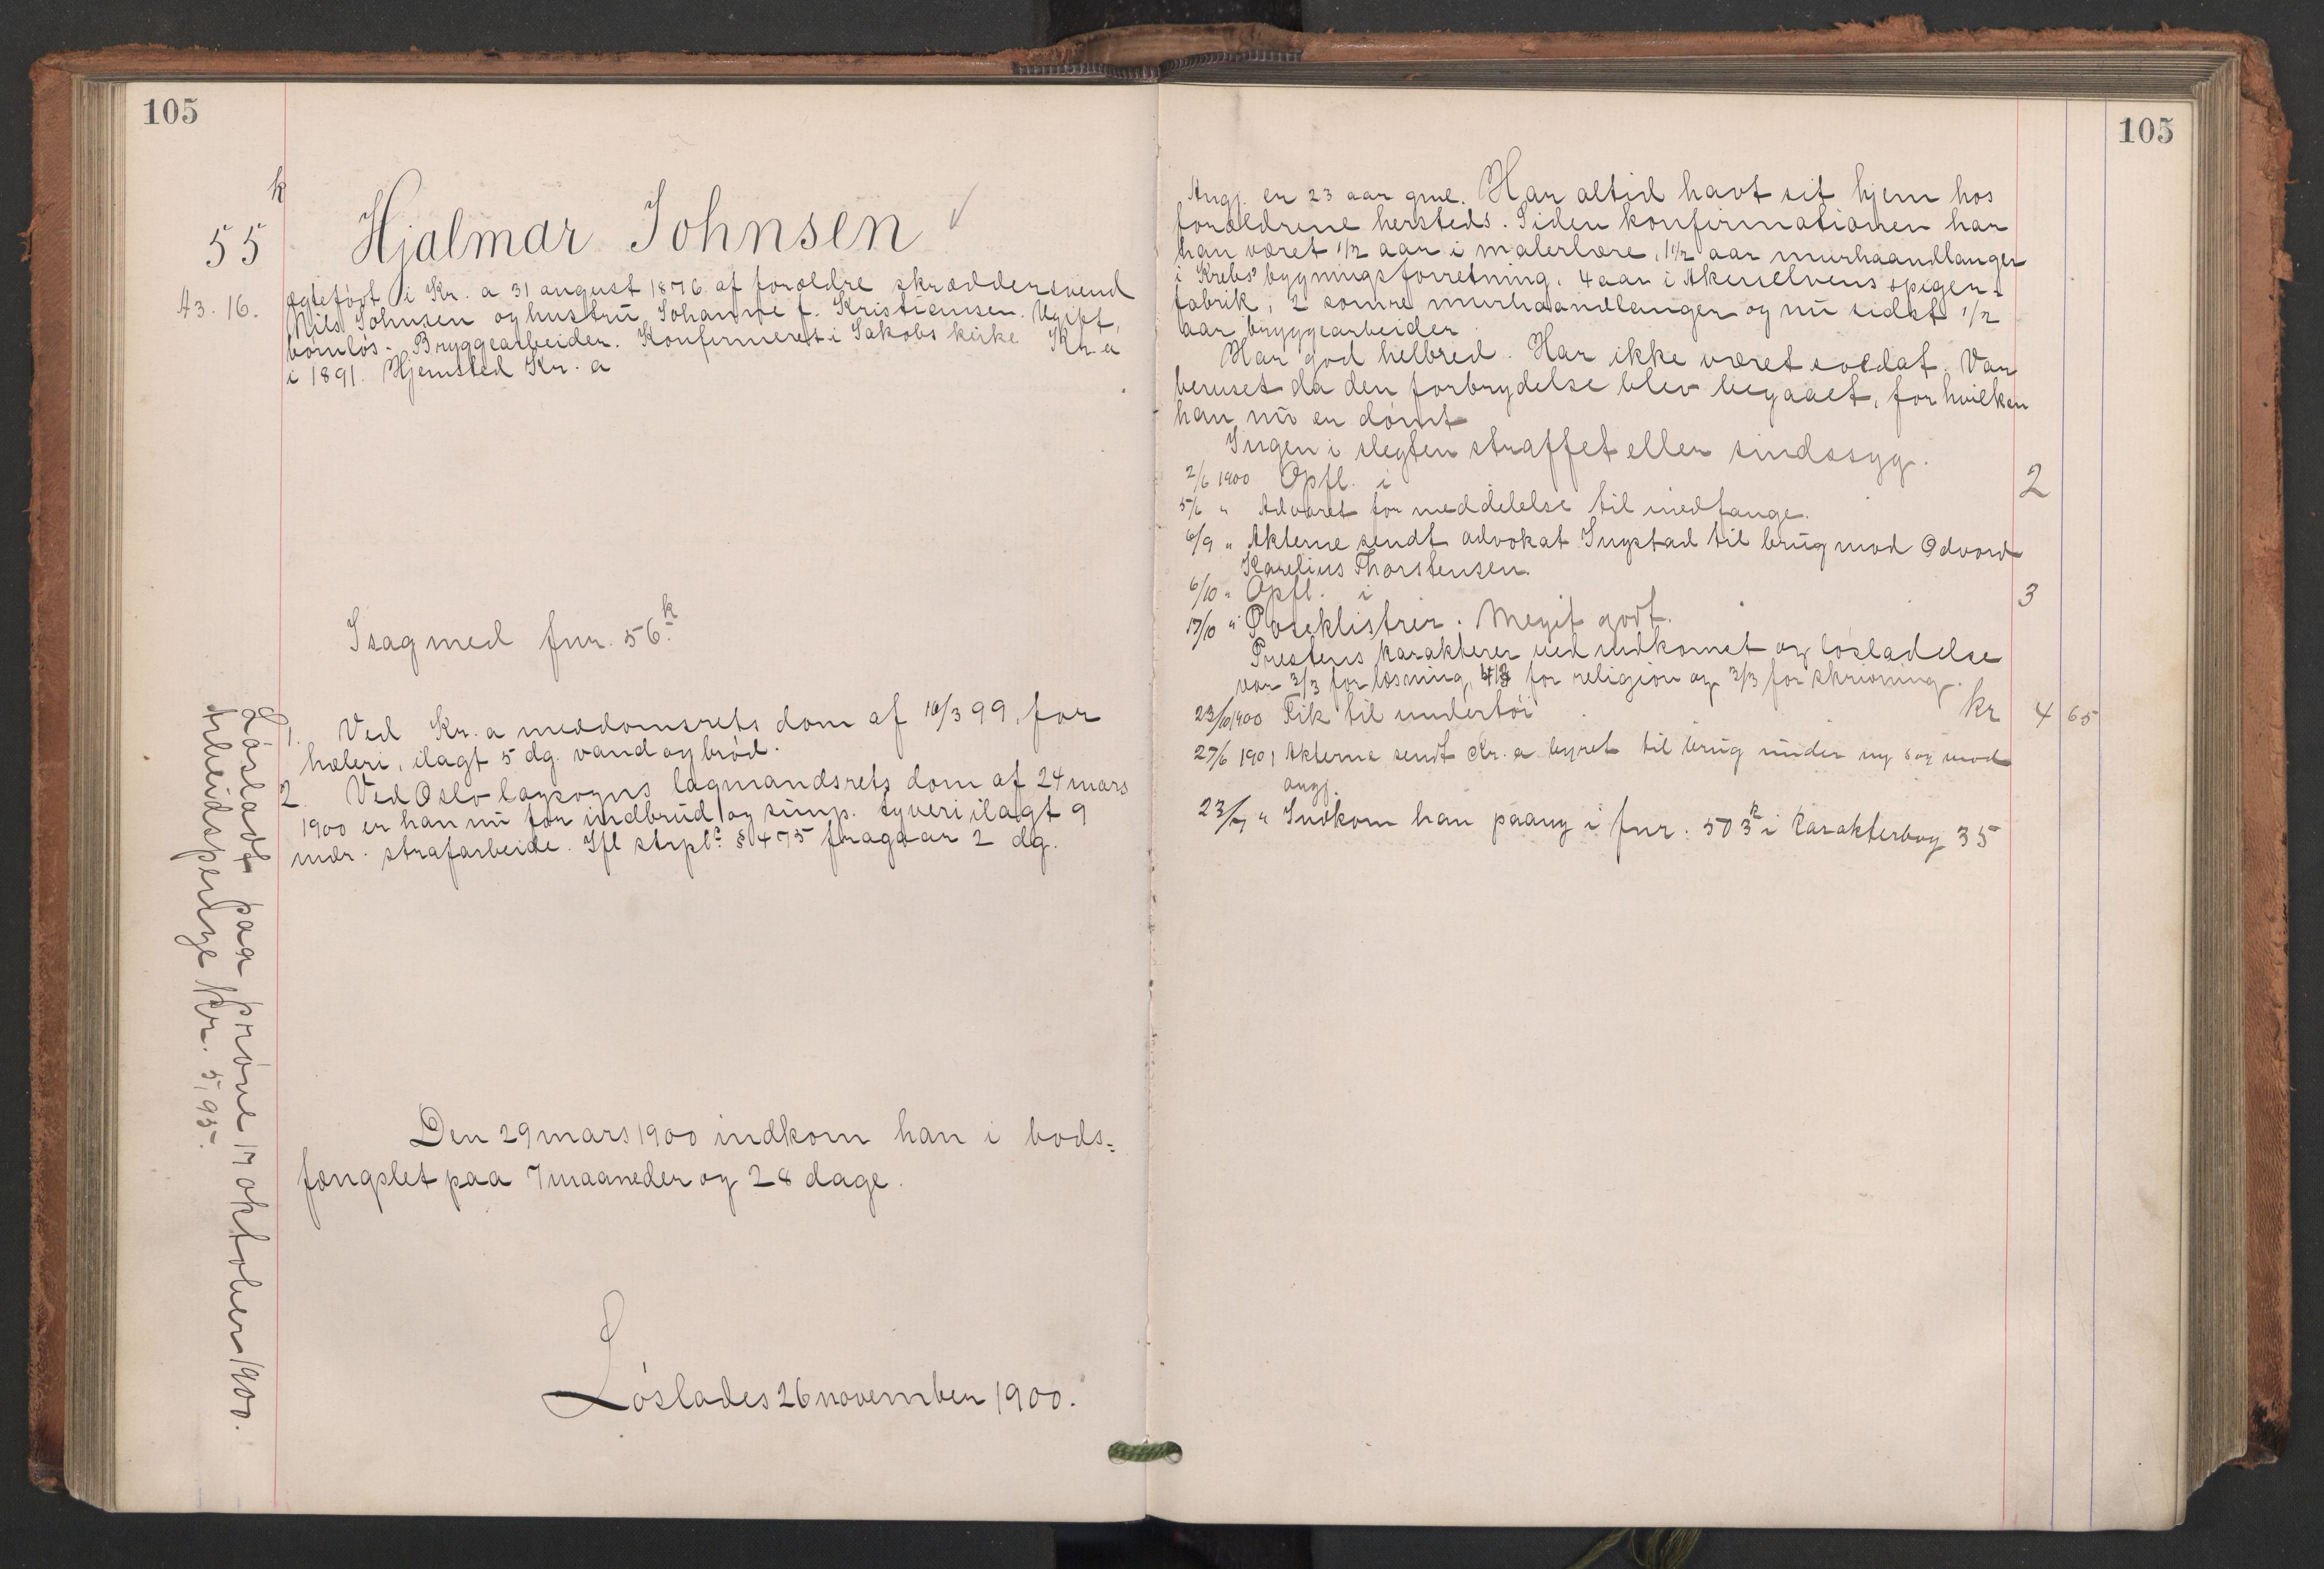 105
k
55
Hjalmar Johnsen
43.16.
Ægtefødt i Kr.a 31 august 1876 af forældre skræddersvend
Nils Johnsen og hustru Johanne f. Kristiansen. Ugift,
børnløs. Bryggearbeider. Konfirmeret i Jakobs kirke Kr.a
i 1891. Hjemsted Kr.a
I sag med fnr. 56k.
1. Ved Kr.a meddomsrets dom af 10/3 99, for
hæleri, ilagt 5 dg. vand og brød.
2. Ved Oslo lagsogns lagmandsrets dom af 24 mars
1900 er han nu for indbrud og simp. tyveri ilagt 9
mdr. strafarbeide. Ifl strpl. § 475 fragaar 2 dg.
Den 29 mars 1900 indkom han i bods-
fængslet paa 7 maaneder og 28 dage.
Løslades 26 november 1900.
Løsladt paa prøve 17 oktober 1900.
Arbeidspenge kr. 5,95.
105
Angj. er 23 aar gml. Har altid havt sit hjem hos
forældrene hersteds. Siden konfirmationen har
han været 1/2 aar i malerlære, 1 1/2 aar murhaandlanger
i Krebs' bygningsforretning, 4 aar i Akerselvens spiger-
fabrik, 2 somre murhaandlanger og nu sidst 1/2
aar bryggearbeider.
Har god helbred. Har ikke været soldat. Var
beruset da den forbrydelse blev begaaet, for hvilken
han nu er dømt
Ingen i slegten straffet eller sindssyg.
2/6 1900 Opfl. i 2
5/6 " Advaret for meddelelse til medfange.
6/9 " Akterne sendt advokat Ingstad til brug mod Edvard
Karelius Thorstensen.
6/10 " Opfl. i 3
17/10 " Poseklistrer. Meget godt.
Prestens karakterer ved indkomst og løsladelse
var 3/3 for læsning, 4/3 for religion og 3/3 for skrivning.
23/10 1900 Fik til undertøi kr 4 65
27/6 1901 Akterne sendt Kr.a byret til brug under ny sag mod
angj.
23/7 " Indkom han paany i fnr. 503k i karakterbog 35